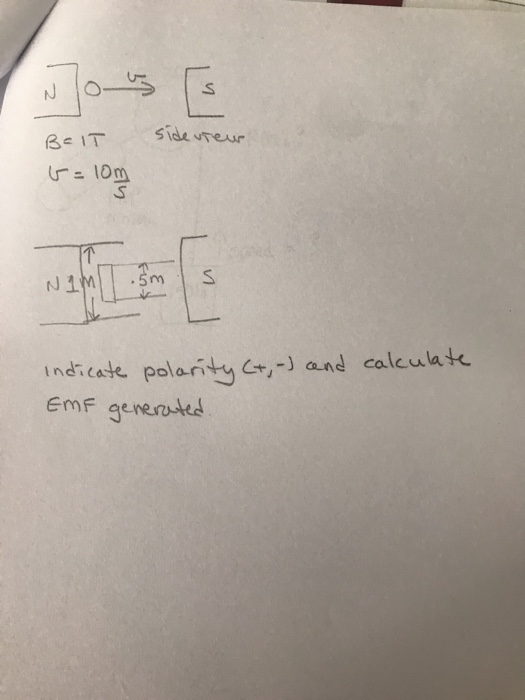 N O v S
B = 1T side view
v = 10 m/s
N 1M .5m S
indicate polarity (+,-) and calculate
EMF generated.